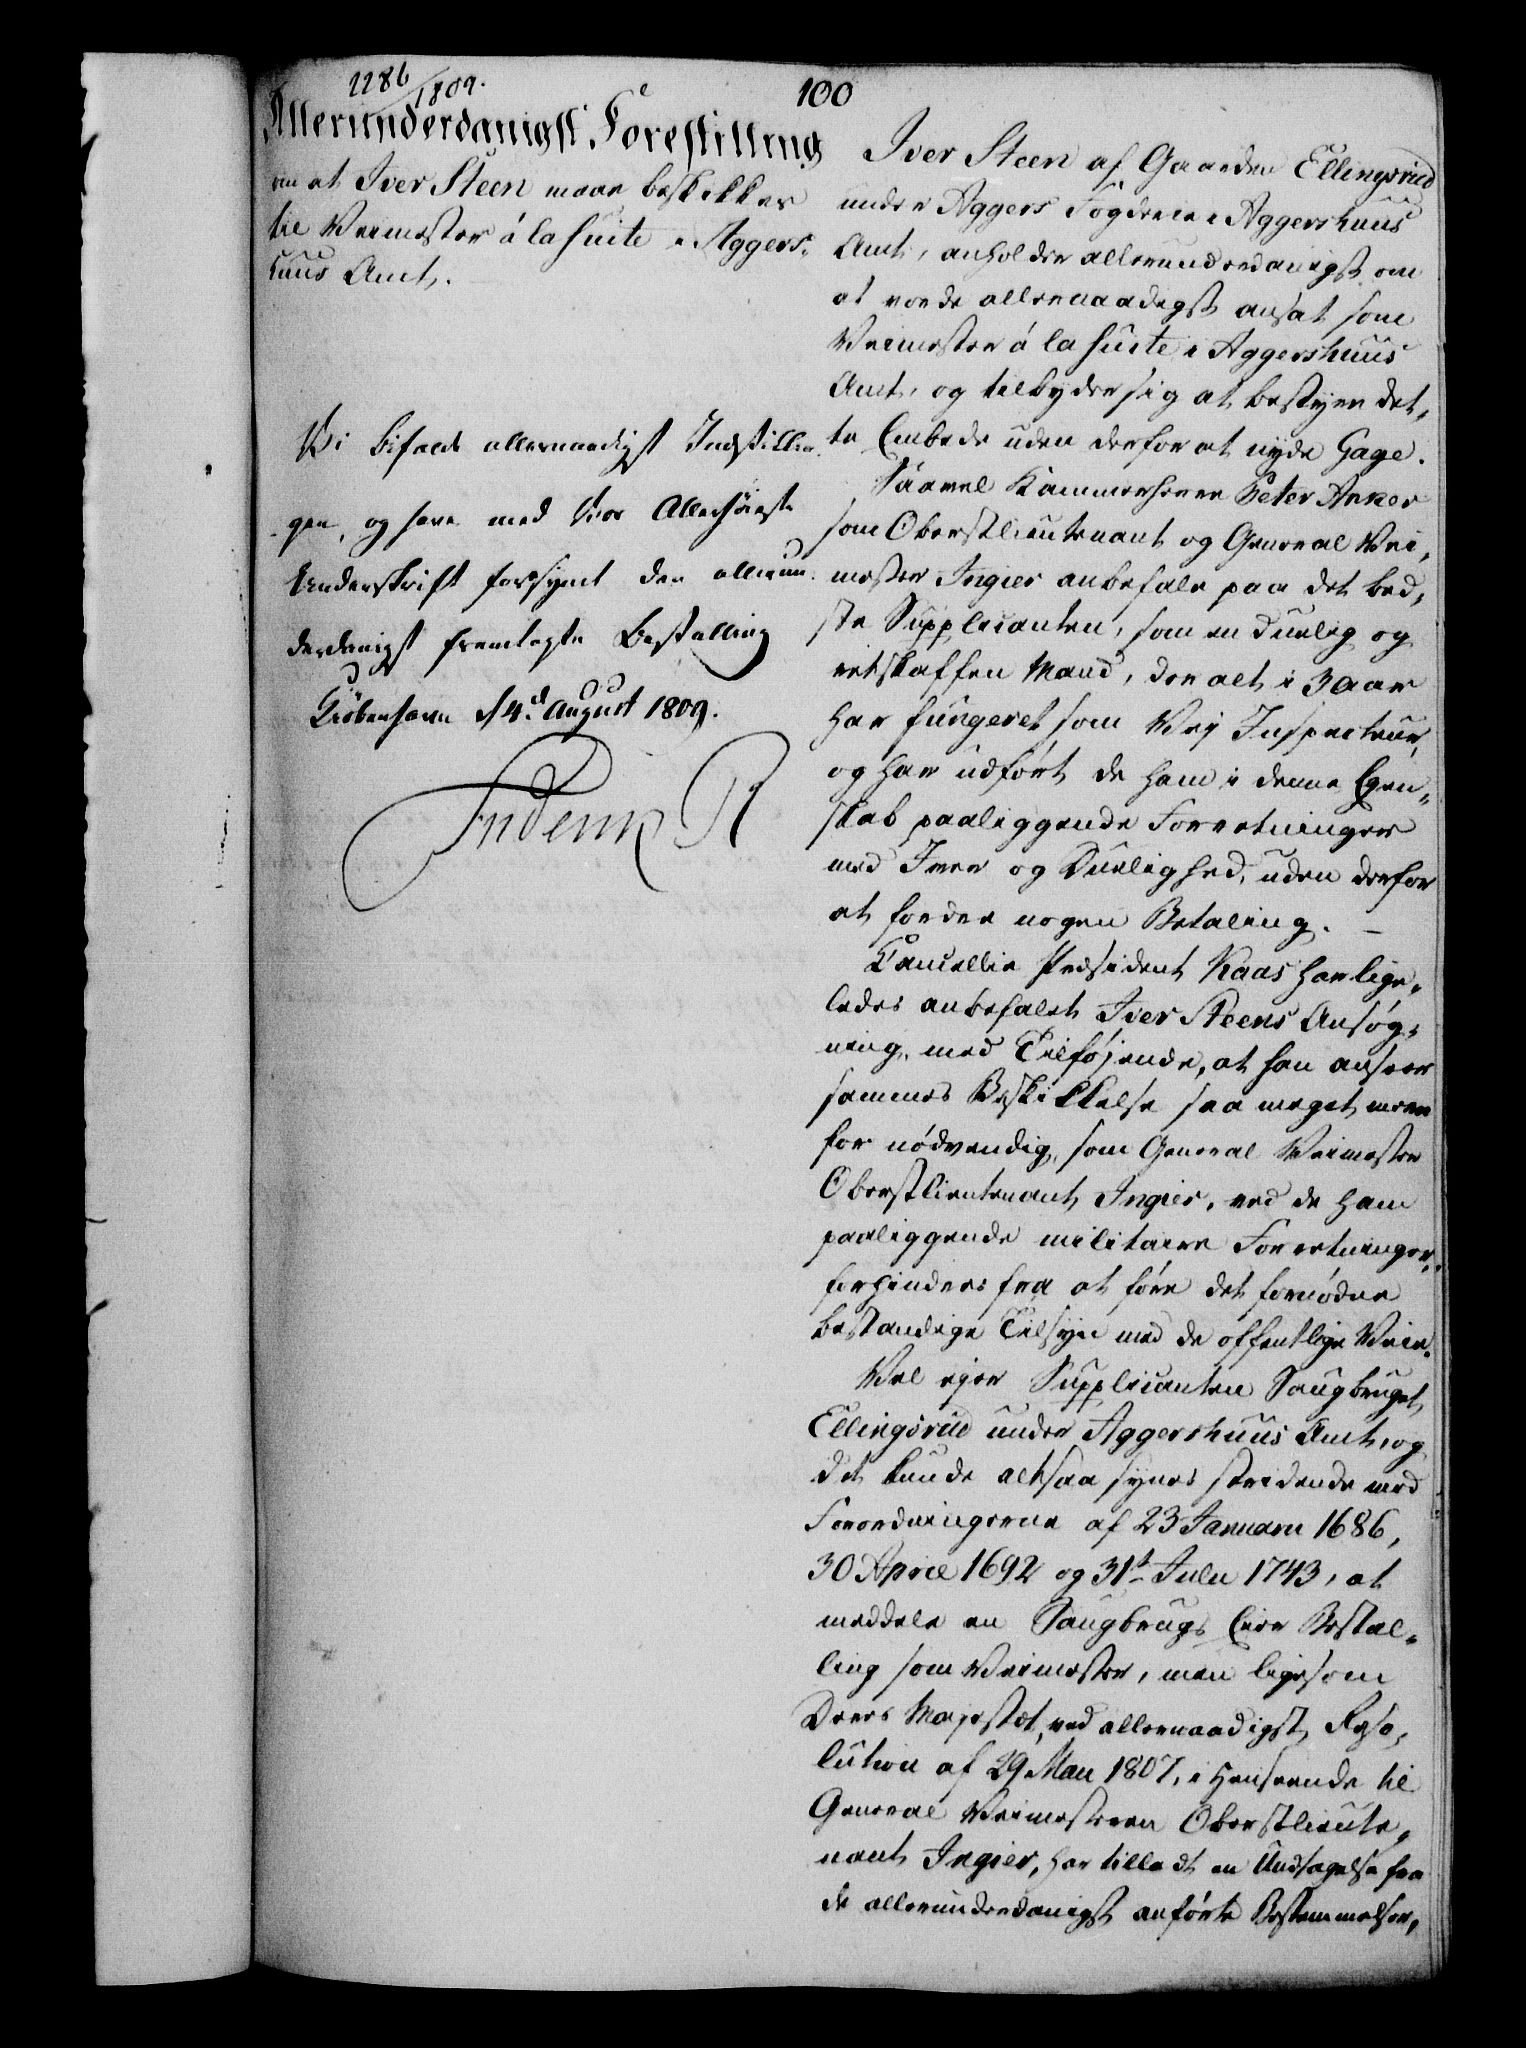 2286/1809.
100
Allerunderdanigst Forestilling
om at Iver Steen maae beskikkes
til Veimester á la suite i Aggers-
huus Amt.
Vi bifalde allernaadigst Indstillin-
gen, og have med Vor Allerhöieste
Underskrift forsynet den allerun-
derdanigst fremlagte Bestalling
Kiöbenhavn d 4.d August 1809.
Frederik R
Iver Steen af Gaarden Ellingsrud
under Aggers Fogderie i Aggershuus
Amt, anholder allerunderdanigst om
at vorde allernaadigst ansat som
Veimester á la suite i Aggershuus
Amt, og tilbyder sig at bestyre det-
te Embede uden derfor at nyde Gage.
Saavel Kammerherre Peter Anker
som Oberstlieutenant og General Vei-
mester Ingier anbefale paa det bed-
ste Supplicanten, som en duelig og
retskaffen Mand, der alt i 3 Aar
har fungeret som Vej Inspecteur,
og har udført de ham i denne Egen-
skab paaliggende Forretninger
med Iver og Duelighed, uden derfor
at fordre nogen Betaling. –
Cancellie Præsident Kaas har lige-
ledes anbefalet Iver Steens Ansøg-
ning, med Tilføjende, at han anseer
sammes Beskikkelse saa meget mere
for nødvendig, som General Veimester
Oberstlieutenant Ingier, ved de ham
paaliggende militaire Forretninger,
forhindres fra at føre det fornødne
bestandige Tilsyn med de offentlige Veie.
Vel ejer Supplicanten Saugbruget
Ellingsrud under Aggershuus Amt, og
det kunde altsaa synes stridende med
Forordningerne af 23 Januarii 1686,
30 April 1692 og 31t Julii 1743, at
meddele en Saugbrugs Eier Bestal-
ling som Veimester, men ligesom
Deres Majestæt, ved allernaadigst Reso-
lution af 29 Maii 1807, i Henseende til
General Veimesteren Oberstlieute-
nant Ingier, har tilladt en Undtagelse fra
de allerunderdanigst anførte Bestemmelser,